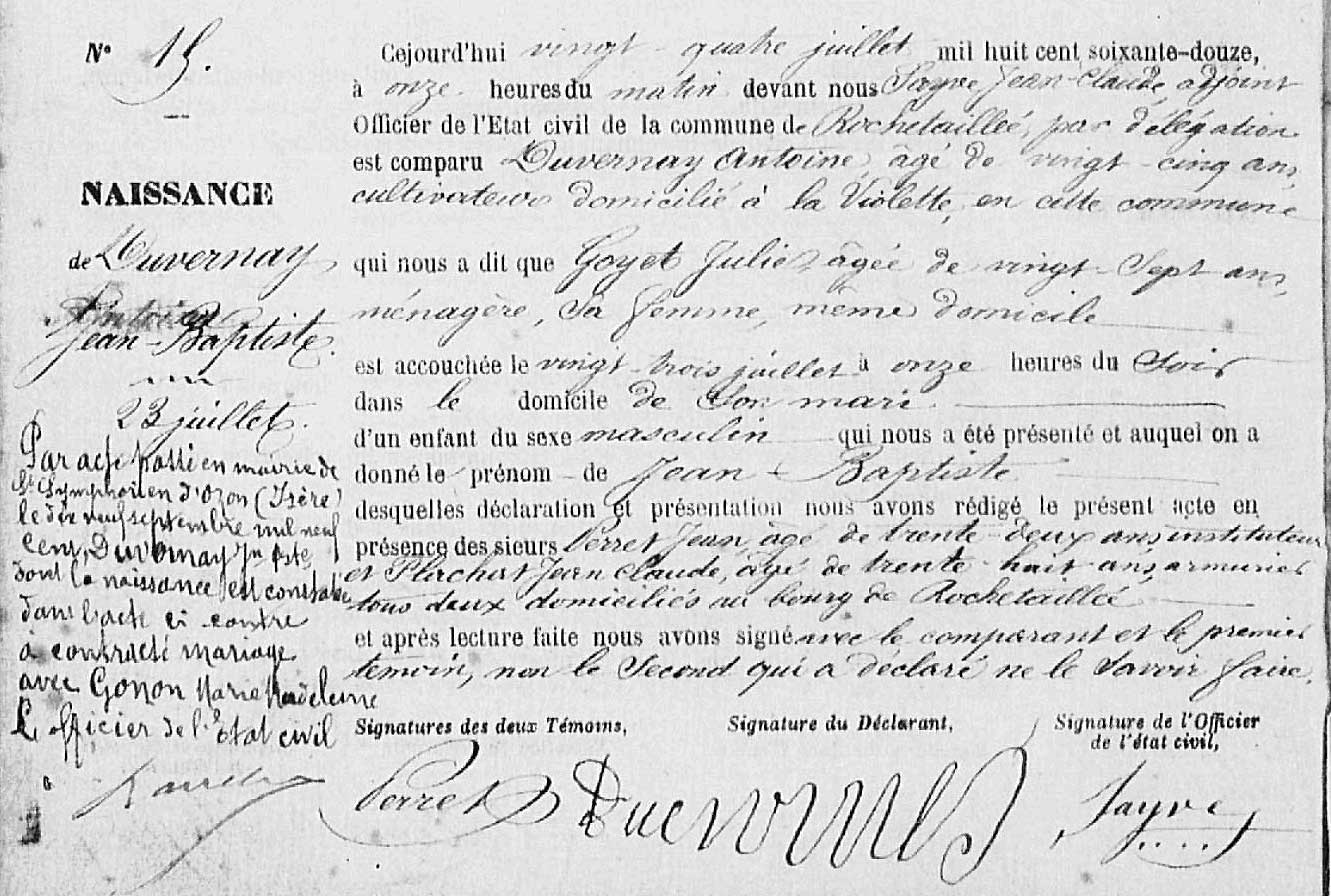 N° 15.
NAISSANCE
de Duvernay
Jean-Baptiste.
23 juillet.
Par acte passé en mairie de
St Symphorien d'Ozon (Isère)
le dix neuf septembre mil neuf
cent, Duvernay Jn Bte
dont la naissance est constatée
dans l'acte ci contre
à contracté mariage
avec Gonon Marie Madeleine
L'officier de l'Etat civil
Cejourd'hui vingt-quatre juillet mil huit cent soixante-douze,
à onze heures du matin devant nous Sayve Jean-Claude, adjoint
Officier de l'Etat civil de la commune de Rochetaillée, par délégation
est comparu Duvernay Antoine, âgé de vingt-cinq ans,
cultivateur domicilié à la Violette, en cette commune
qui nous a dit que Goyet Julie, âgée de vingt-sept ans,
ménagère, sa femme, même domicile
est accouchée le vingt-trois juillet à onze heures du soir
dans le domicile de son mari
d'un enfant du sexe masculin qui nous a été présenté et auquel on a
donné le prénom de Jean-Baptiste
desquelles déclaration et présentation nous avons rédigé le présent acte en
présence des sieurs Perret Jean âgé de trente-deux ans, instituteur
et Jean Claude, âgé de trente-huit ans, armurier
tous deux domiciliés au bourg de Rochetaillée
et après lecture faite nous avons signé avec le comparant et le premier
temoin, non le second qui a déclaré ne le savoir faire.
Signatures des deux Témoins,
Signature du Déclarant,
Signature de l'Officier
de l'état civil,
Perret
Duvernay
Sayve